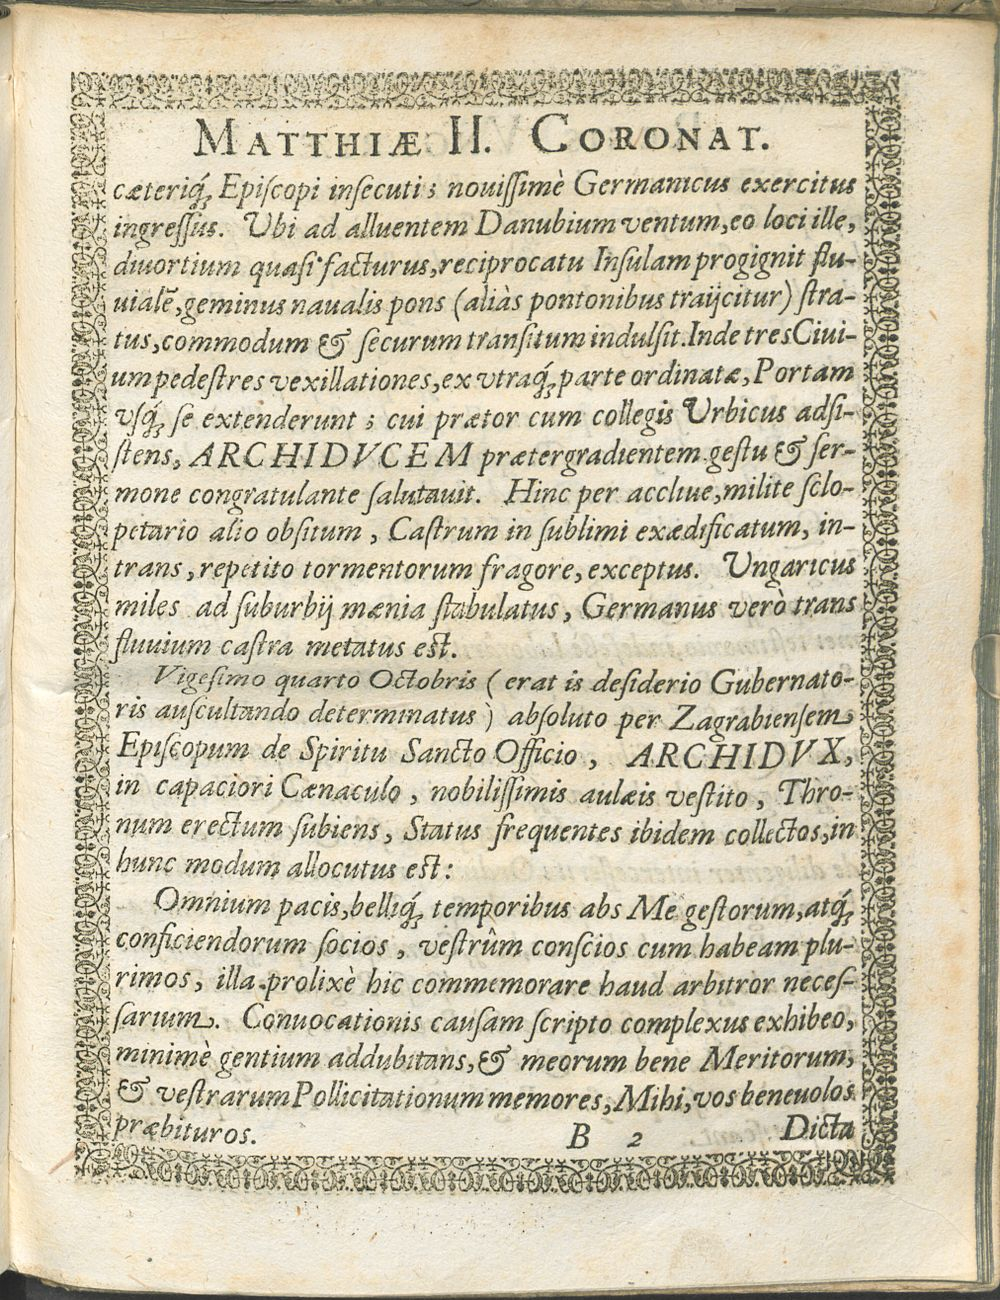 MATTHIÆ II. CORONAT.
cæteriq́; Epiſcopi inſecuti; nouiſſimè Germanicus exercitus
ingreſſus. Ubi ad alluentem Danubium ventum, eo loci ille,
diuortium quaſi facturus, reciprocatu Inſulam progignit flu-
uialē, geminus naualis pons (aliàs pontonibus traijcitur) ſtra-
tus, commodum & ſecurum tranſitum indulſit. Inde tres Ciui-
um pedeſtres vexillationes, ex vtraq́; parte ordinatæ, Portam
vſq́; ſe extenderunt; cui prætor cum collegis Urbicus adſi-
ſtens, ARCHIDVCEM prætergradientem geſtu & ſer-
mone congratulante ſalutauit. Hinc per accliue, milite ſclo-
petario alio obſitum, Caſtrum in ſublimi exædificatum, in-
trans, repetito tormentorum fragore, exceptus. Ungaricus
miles ad ſuburbij mœnia ſtabulatus, Germanus verò trans
fluuium caſtra metatus eſt.
Vigeſimo quarto Octobris (erat is deſiderio Gubernato-
ris auſcultando determinatus) abſoluto per Zagrabienſem
Epiſcopum de Spiritu Sancto Officio, ARCHIDVX,
in capaciori Cœnaculo, nobiliſſimis aulæis veſtito, Thro-
num erectum ſubiens, Status frequentes ibidem collectos, in
hunc modum allocutus eſt:
Omnium pacis, belliq́; temporibus abs Me geſtorum, atq́;
conficiendorum ſocios, veſtrûm conſcios cum habeam plu-
rimos, illa prolixè hic commemorare haud arbitror neceſ-
ſarium. Conuocationis cauſam ſcripto complexus exhibeo,
minimè gentium addubitans, & meorum bene Meritorum,
& veſtrarum Pollicitationum memores, Mihi, vos beneuolos
præbituros.
B 2 Dicta